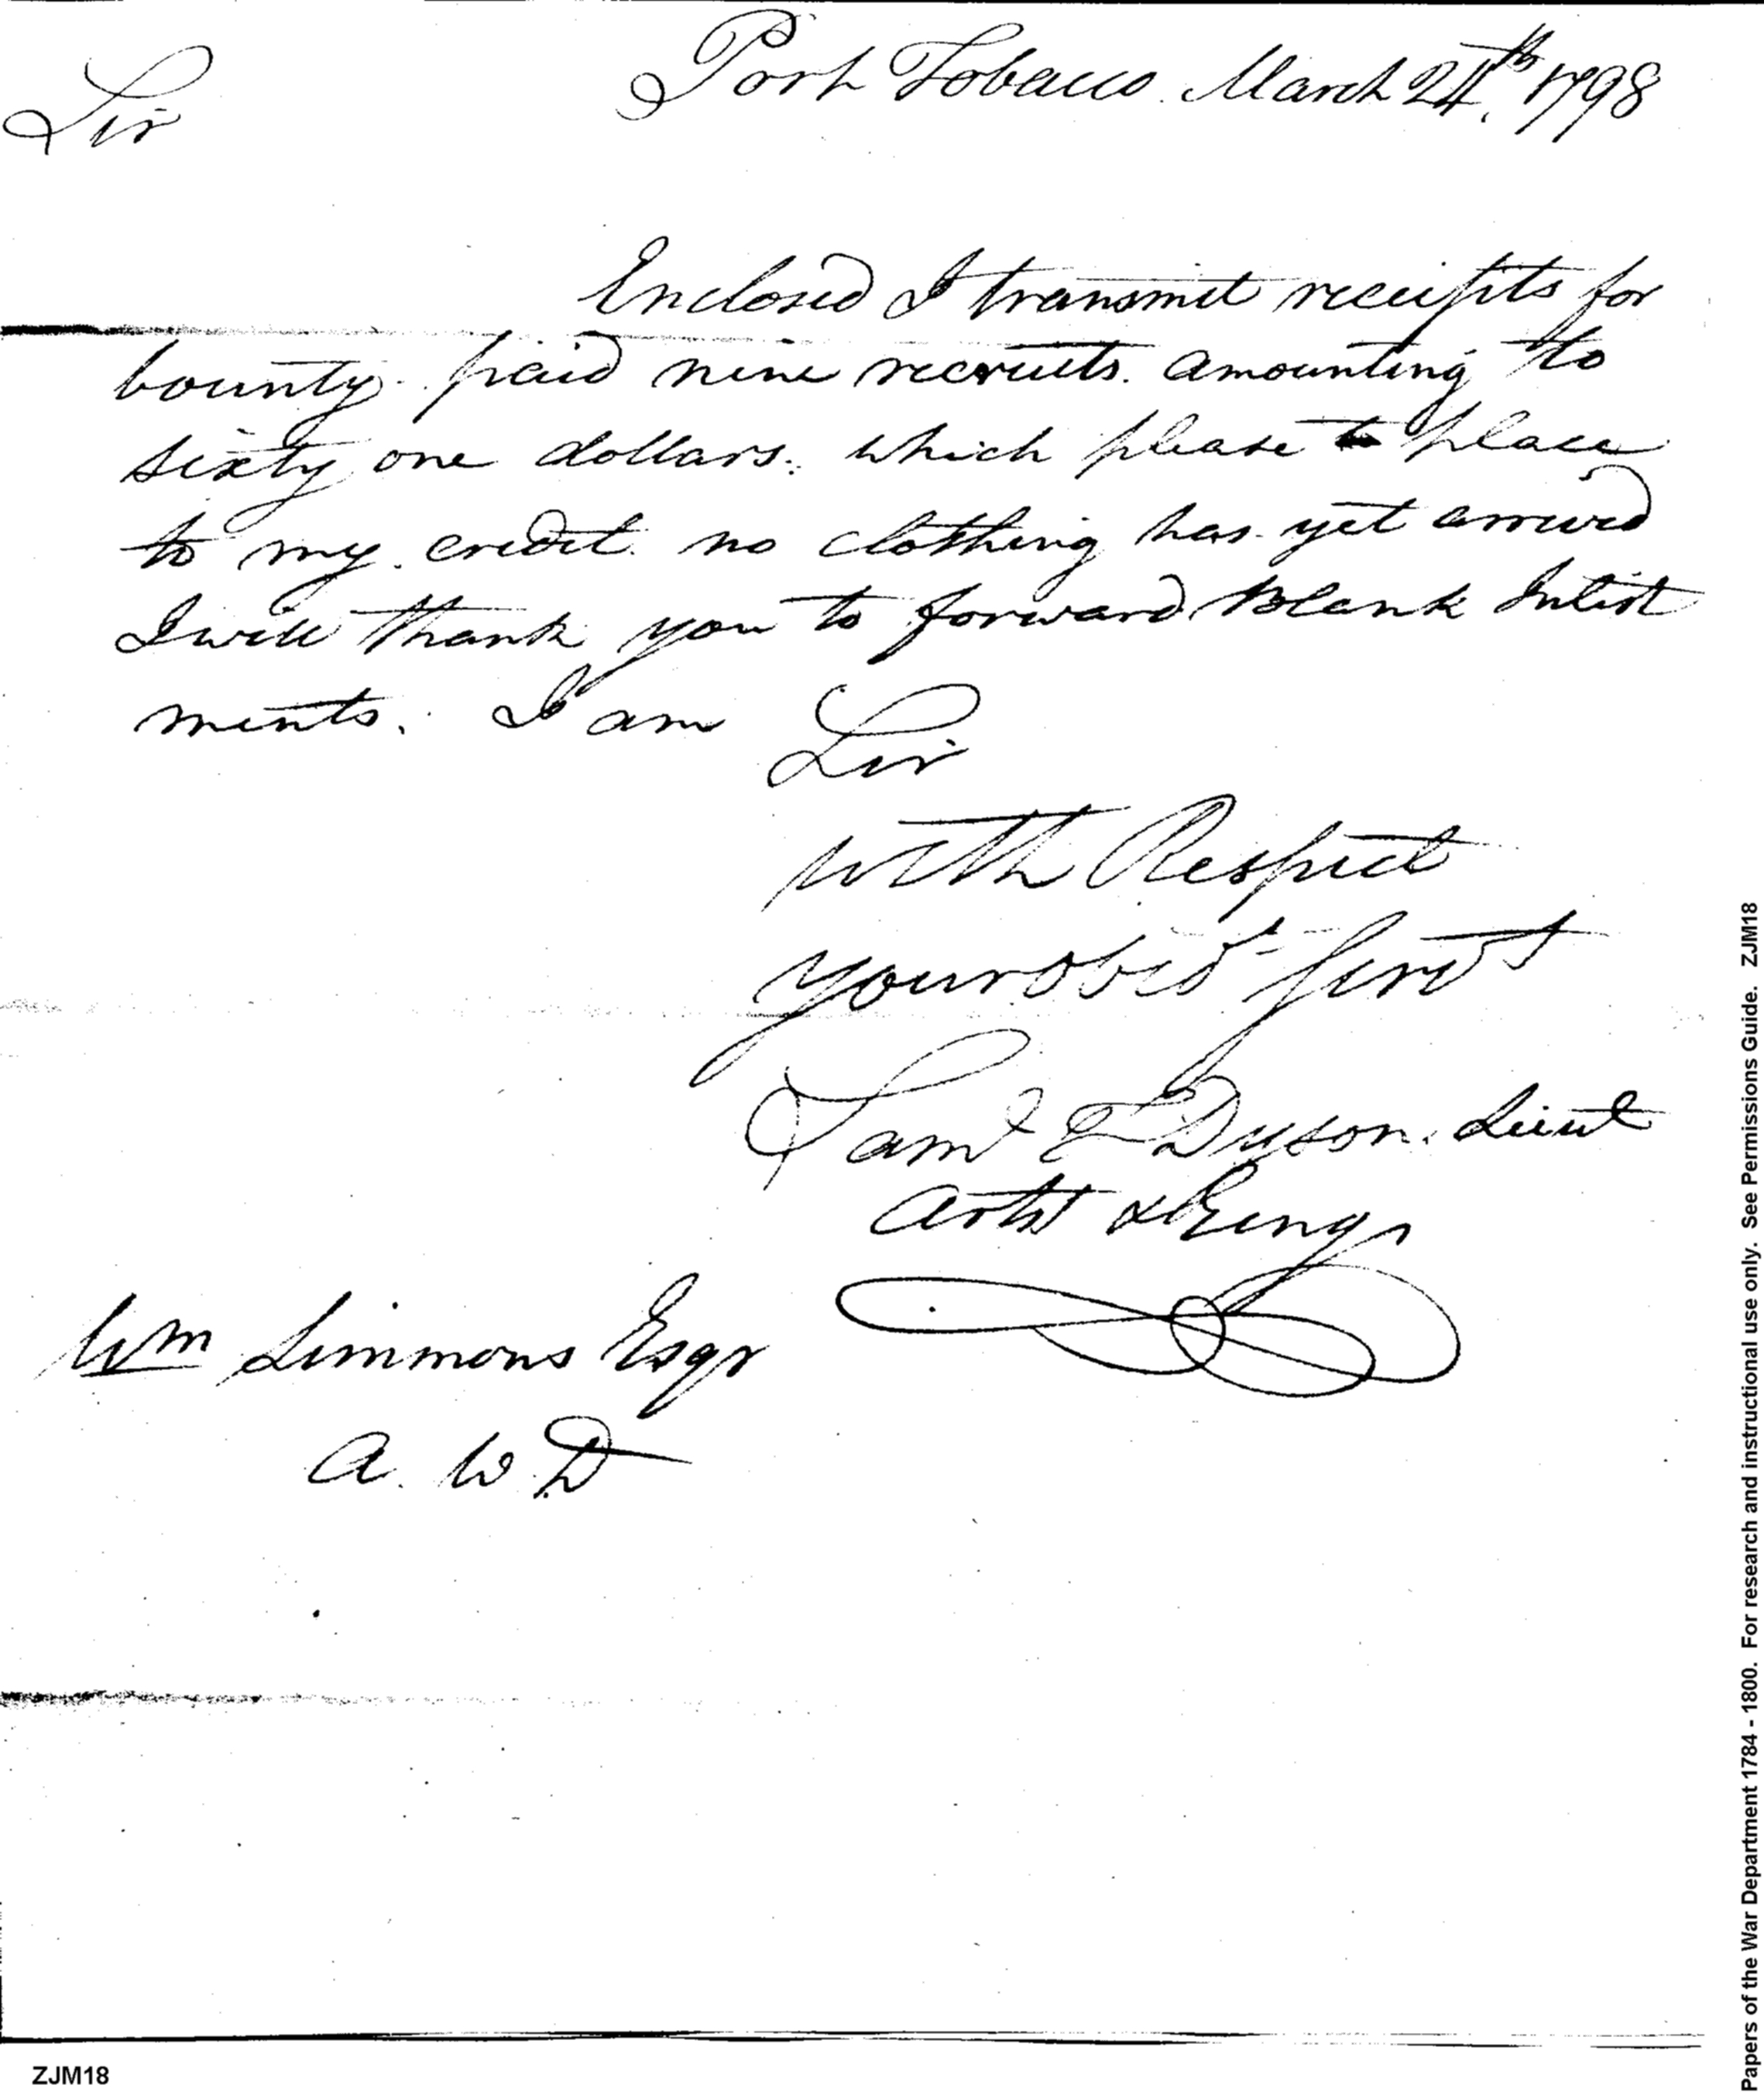 Port Tobacco. March 24th. 1798
Sir
Enclosed I transmit receipts for
bounty paid nine recruits. amounting to
sixty one dollars. which please to place
to my credit. no clothing has yet arrived
I will thank you to forward Blank Inlist
ments. I am Sir
with Respect
your obed t Servt
Saml T Dyson. Lieut
Artst & Engr
Wm Simmons Esqr
A. W. D
Papers of the War Department 1784 - 1800. For research and instructional use only. See Permissions Guide. ZJM18
ZJM18